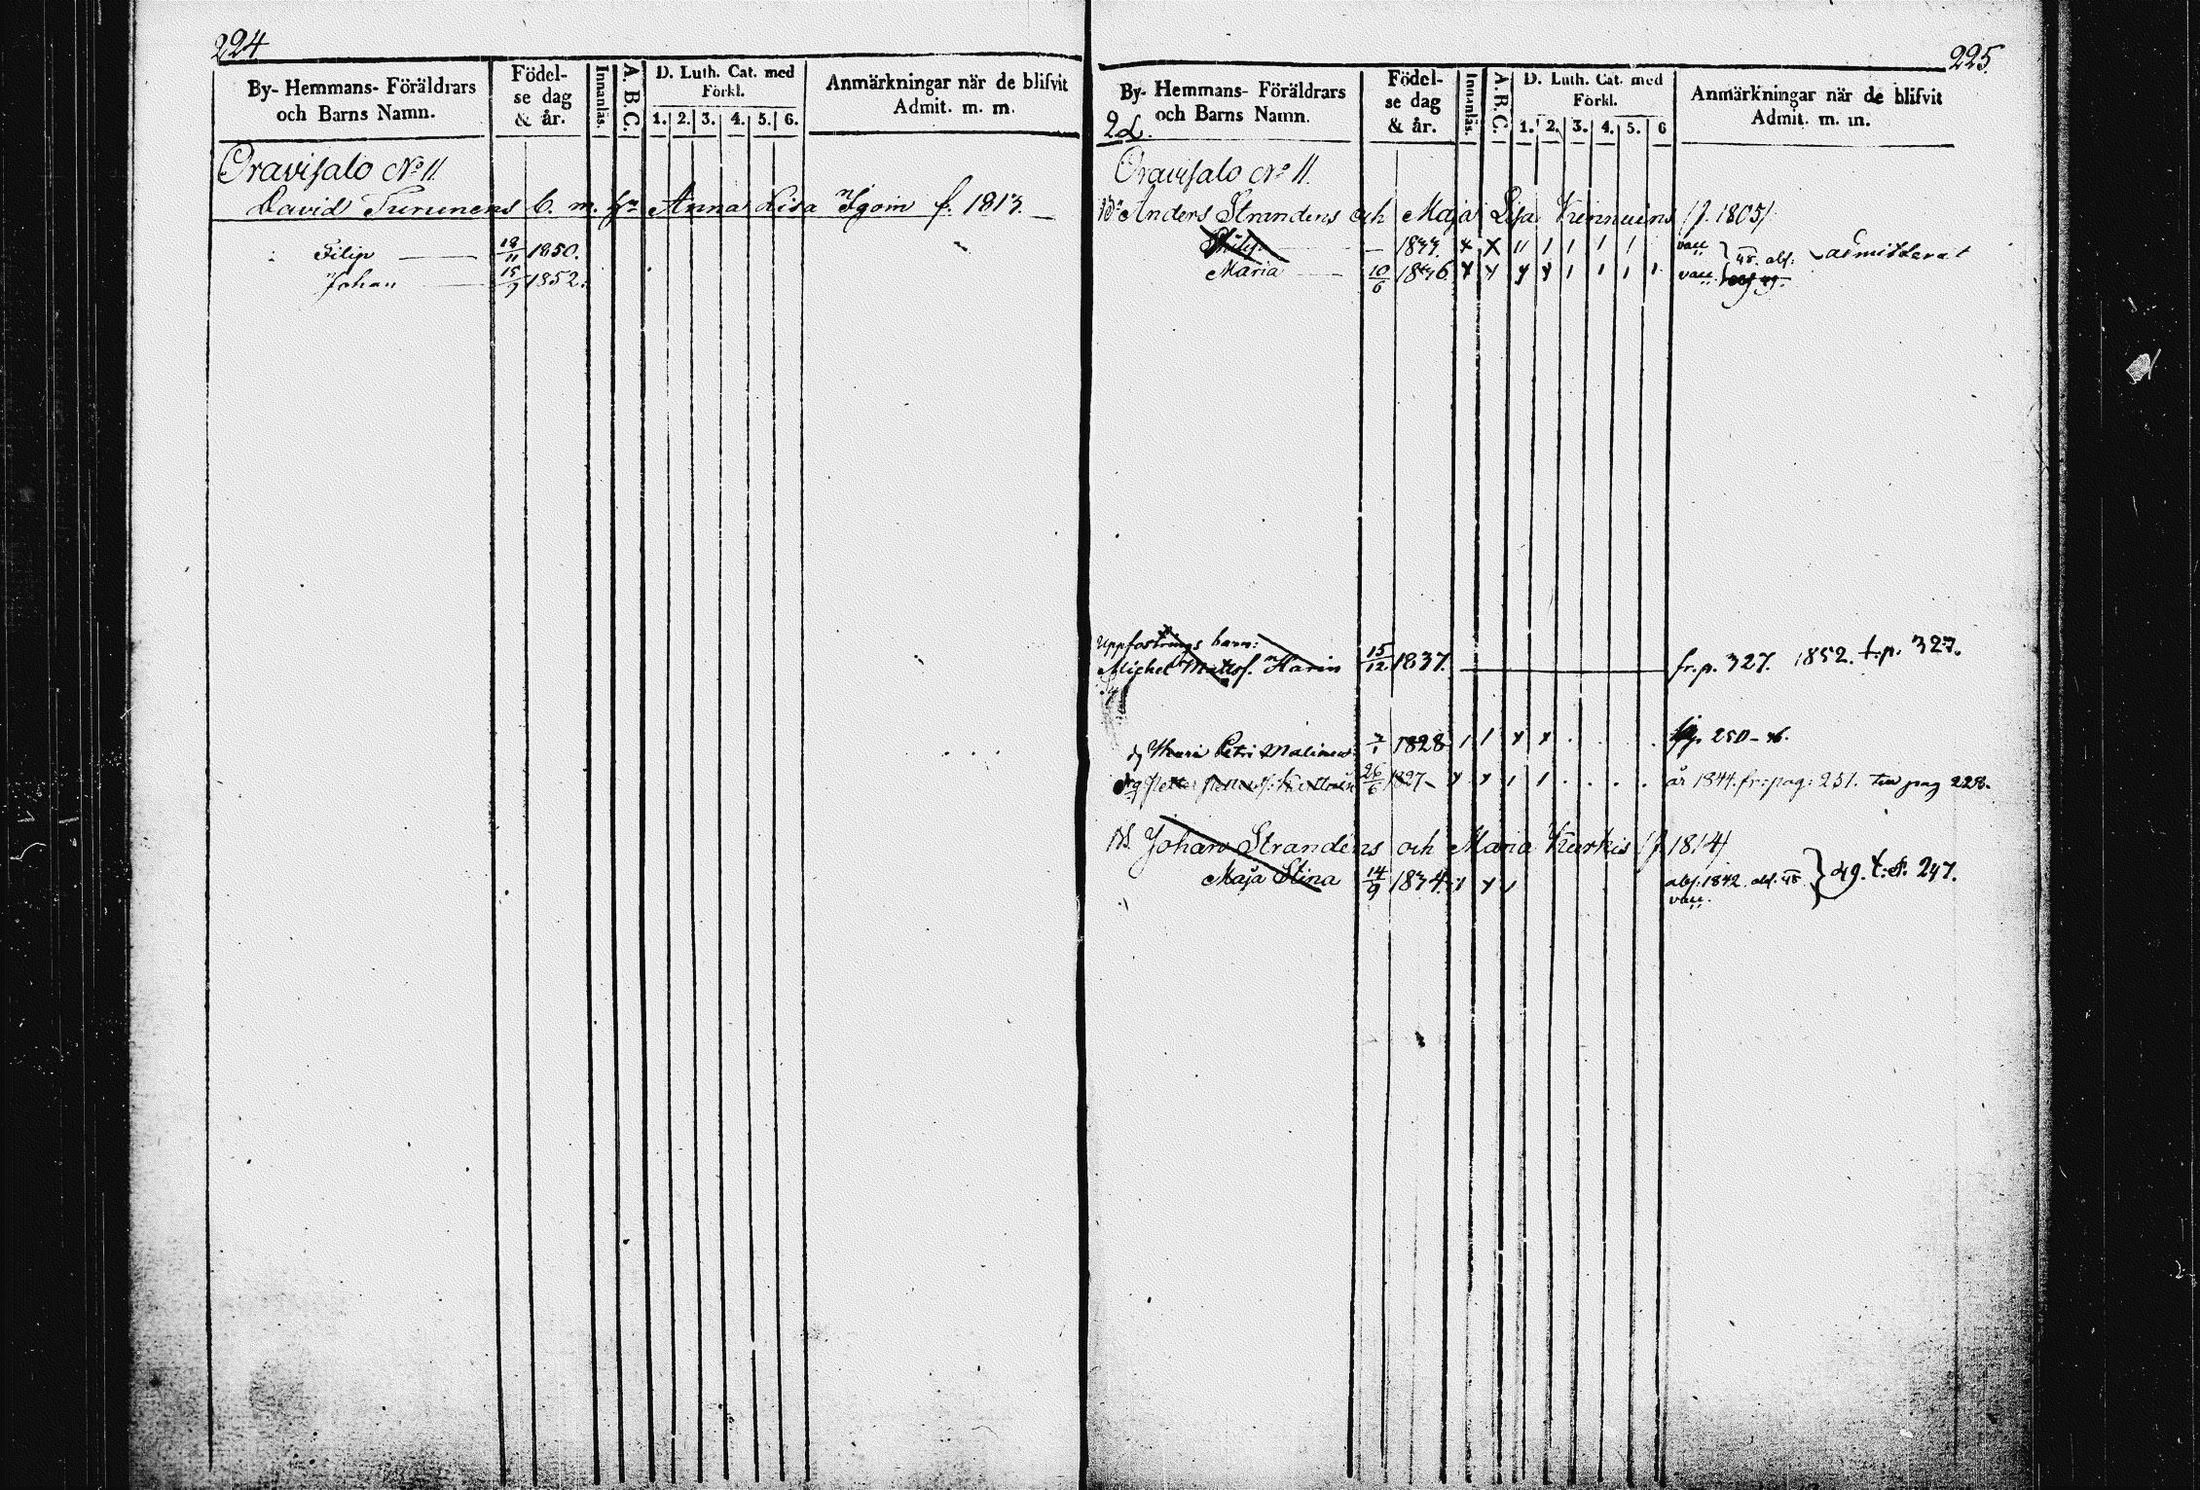 224
By- Hemmans- Föräldrars och Barns Namn.
Födelse dag & år.
Innanläs.
A. B. C.
D. Luth. Cat. med Förkl.
1. 2. 3. 4. 5. 6.
Anmärkningar när de blifvit Admit. m. m.
Oravisalo No 11
David Turunens b. m. Anna Lisa Igoin f. 1813.
Filip 18/11 1850.
Johan 15/9 1852.
225
By- Hemmans- Föräldrars och Barns Namn.
Födelse dag & år.
Innanläs.
A. B. C.
D. Luth. Cat. med Förkl.
1. 2. 3. 4. 5. 6
Anmärkningar när de blifvit Admit. m. m.
Oravisalo No 11.
Anders Strandens och Maja Lisa Kinnuins (f. 1805)
Philip admitterat
Maria 10/6 1836
Uppfostrings barn:
Michel Mattsf. Harin 15/12 1837. fr. p. 327. 1852. t. p. 327.
1828 250
26/6 1827 år 1844. fr. pag: 251. pag 228.
Johan Strandens och Maria Kurkis (f 1814)
Maja Stina 14/9 1834 abs. 1842. 49. 247.